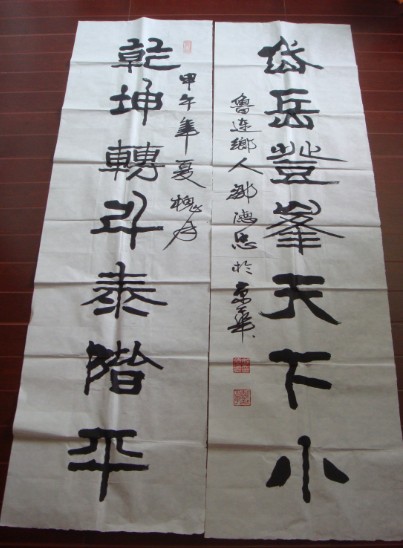 岱岳登峯天下小
乾坤轉斗泰階平
甲午年夏槐月
魯連鄉人郝鴻忠於京華